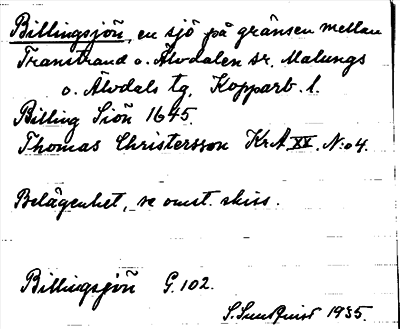 Billingsjön, en sjö på gränsen mellan
Transtrand o. Älvdalen sr. Malungs
o. Älvdals tg. Kopparb. l.
Billing Siön 1645.
Thomas Christersson KrA XX. N:o 4.
Belägenhet, se omst. skiss.
Billingsjön G. 102.
S. Sundquist 1935.